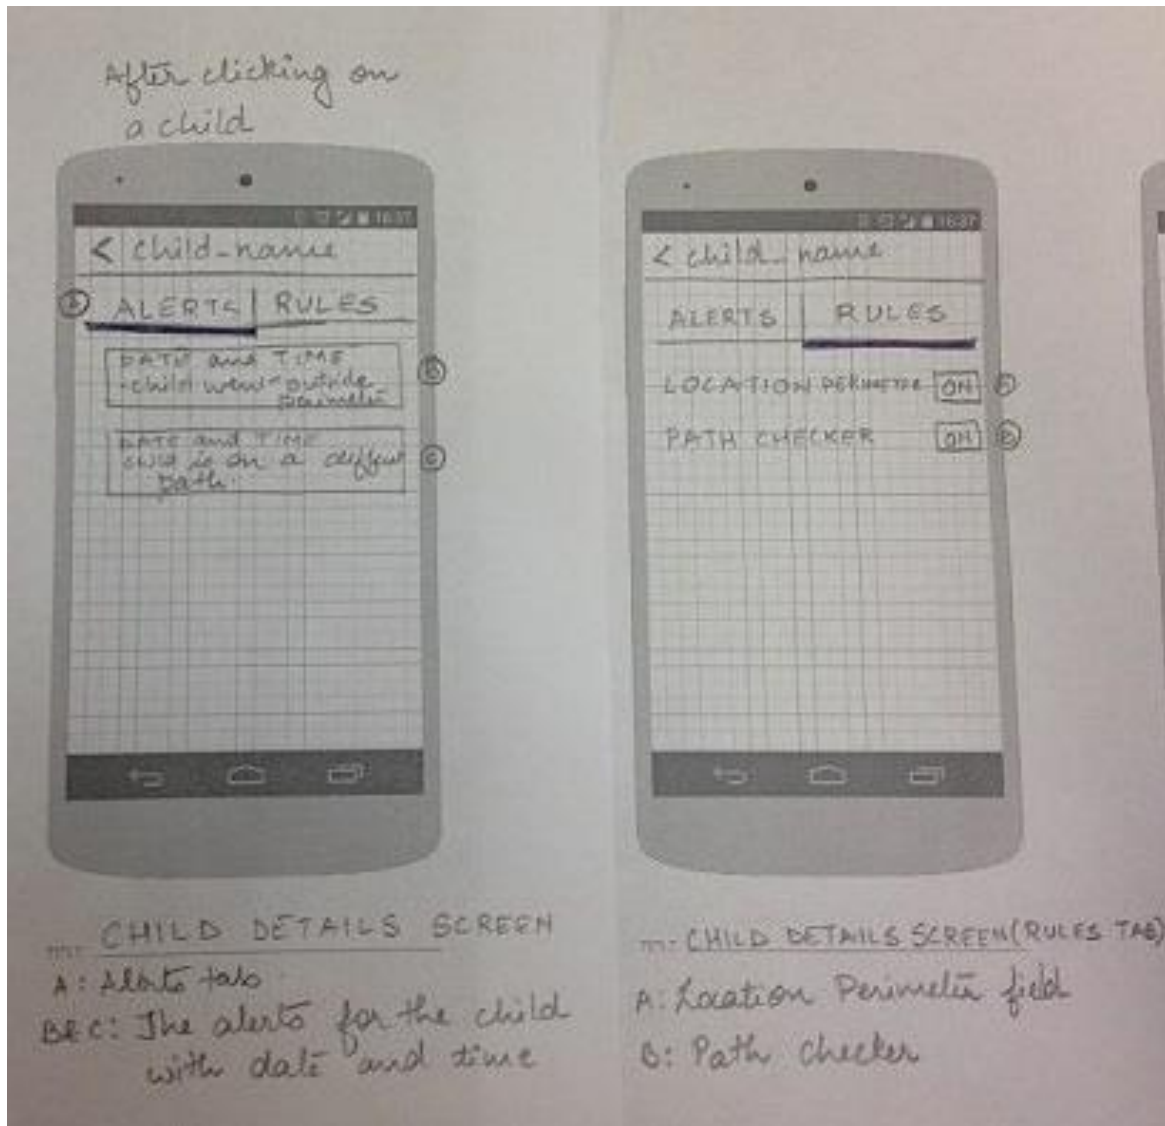 After clicking on
a child
16:37
< child_name
A ALERTS RULES
DATE and TIME
child went outside B
perimeter
DATE and TIME
child is on a C
path.
TITLE: CHILD DETAILS SCREEN
A: Alerts tab
B&C: The alerts for the child
with date and time
16:37
< child_name
ALERTS RULES
LOCATION PERIMETER ON A
PATH CHECKER ON B
TITLE: CHILD DETAILS SCREEN (RULES TAB)
A: Location Perimeter field
B: Path checker